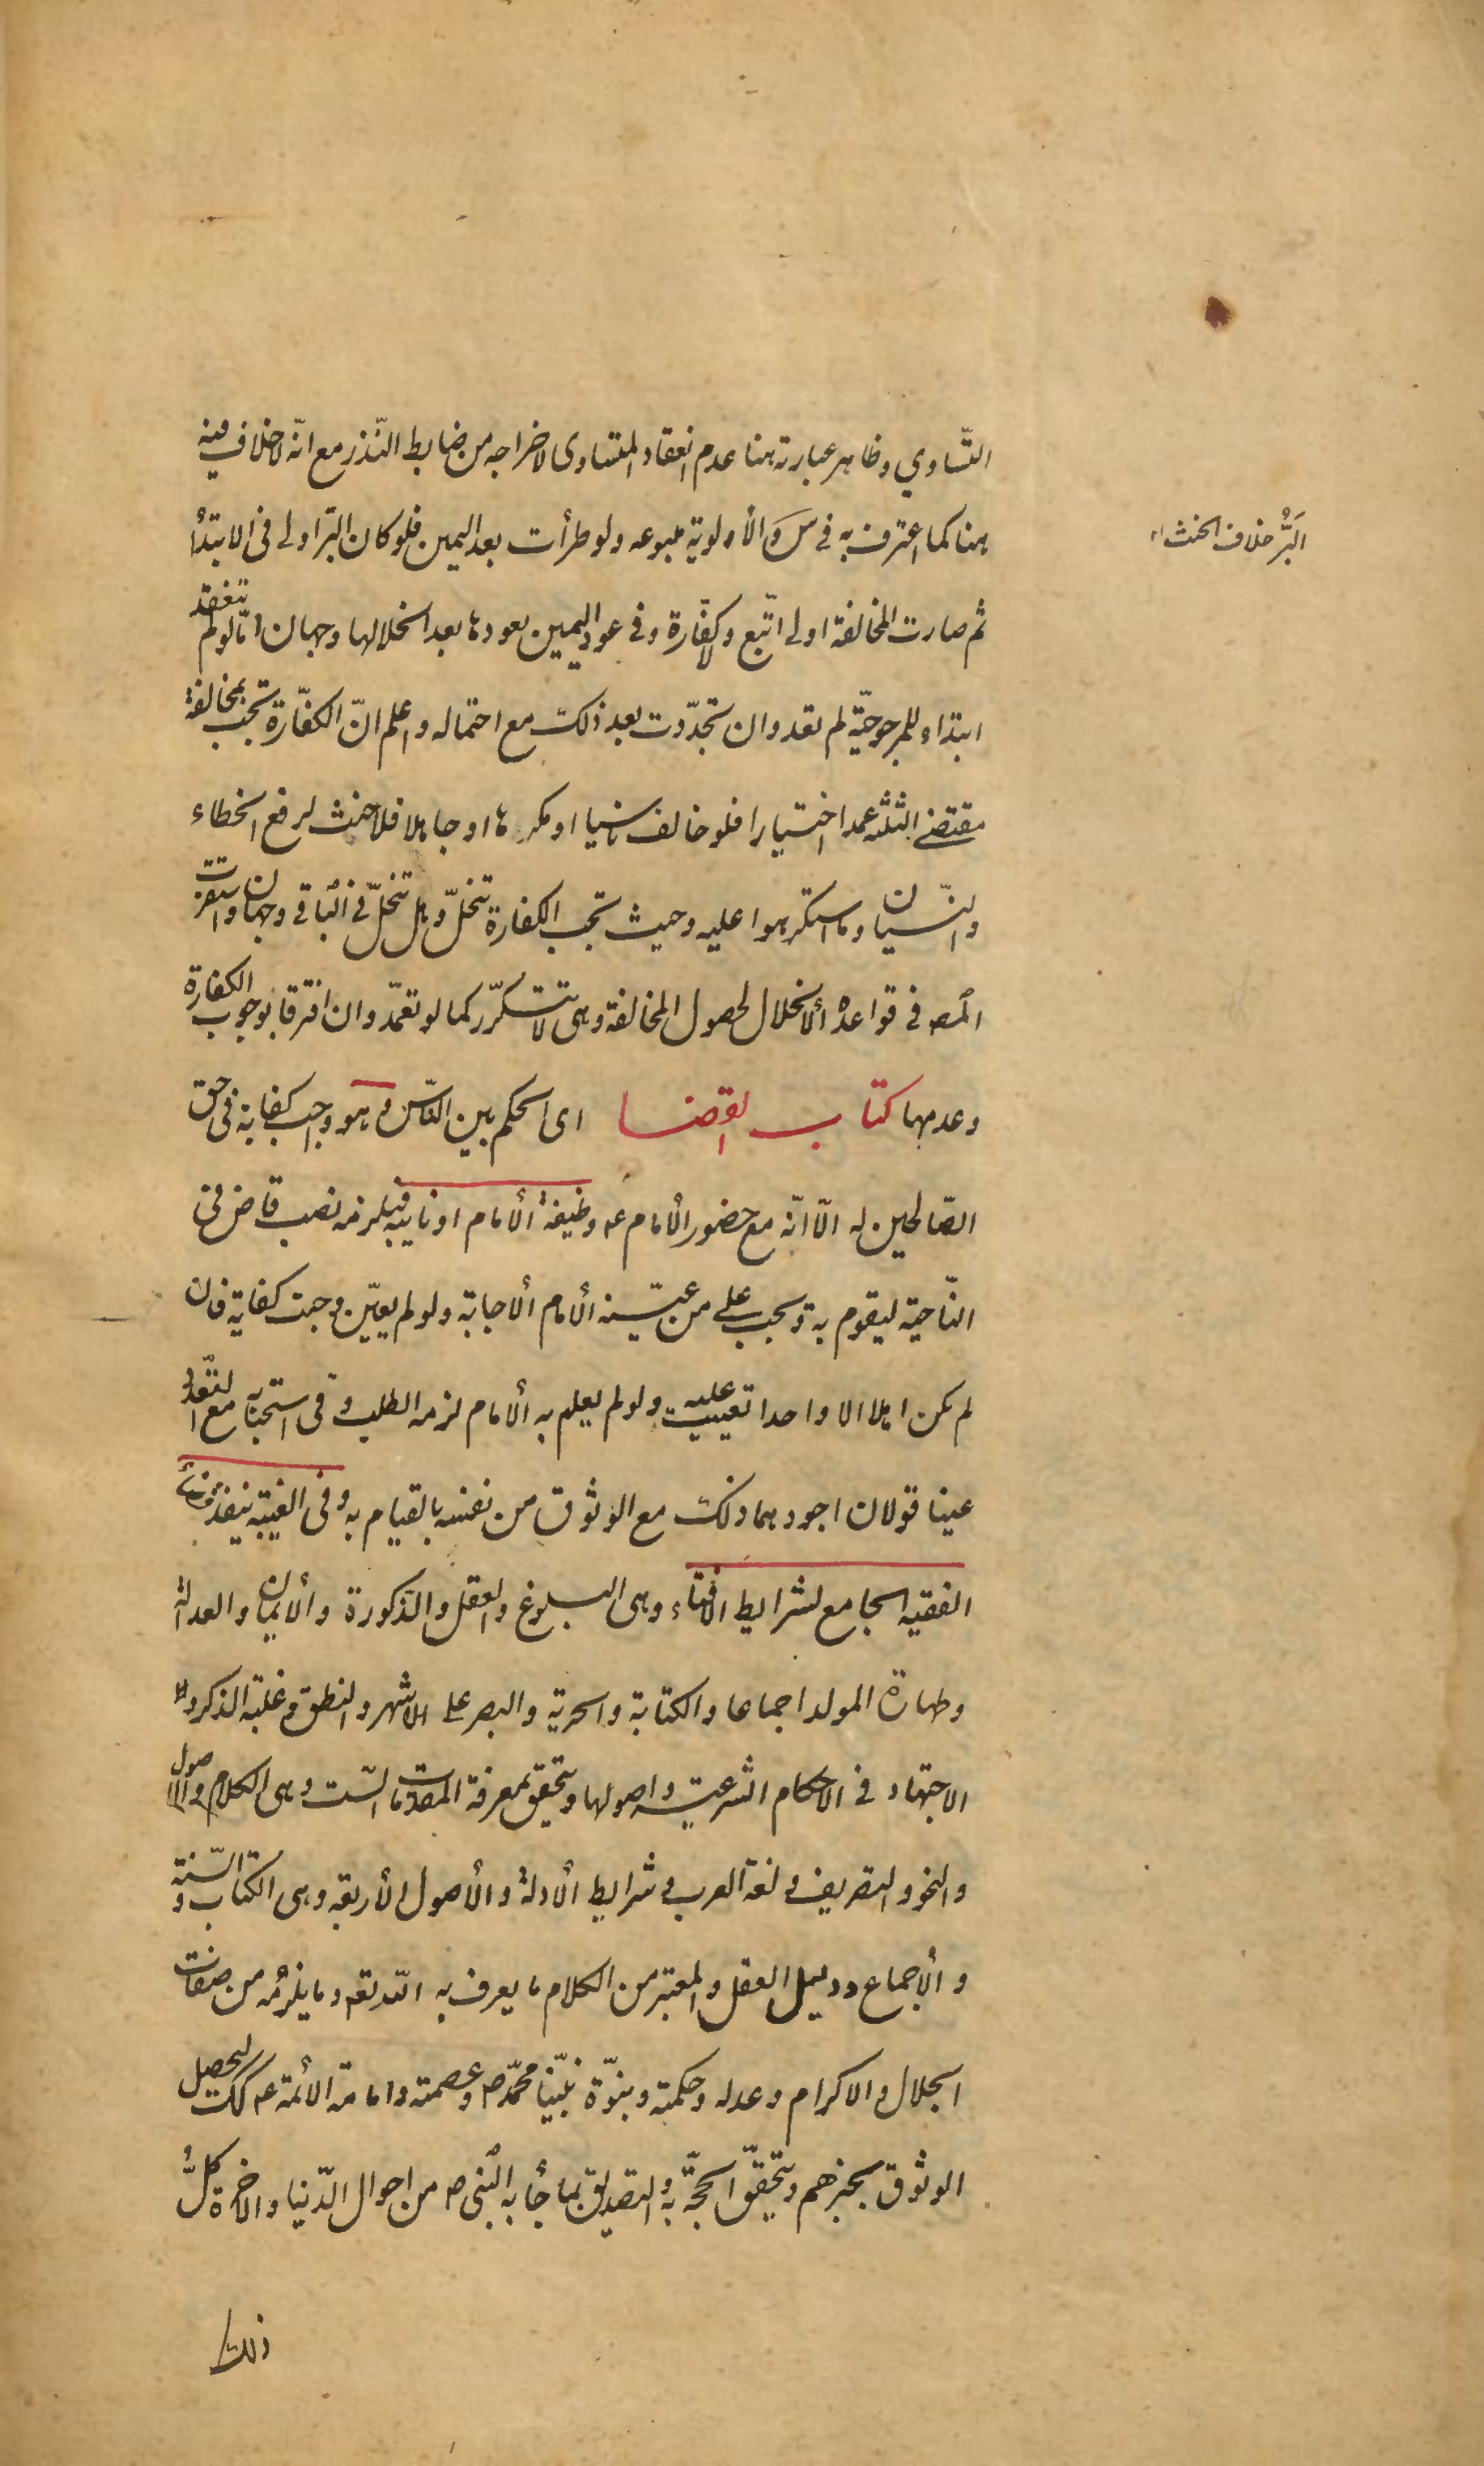 التّساوي وظاهر عبارته هنا عدم انعقاد المتساوى لاخراجه من ضابط النّذر مع انّه لا خلاف فيه
هنا كما اعترف به في س والأولوية متبوعه ولو طرأت بعد اليمين فلو كان البرّ اولى فى الابتدأ
البَرُّ خلاف الحنث
ثم صارت المخالفة اولى اتّبع ولا كفّارة وفى عود اليمين بعودها بعد انحلالها وجهان امّا لو لم تنعقد
ابتداء للمرجوحيّة لم تعد وان تجدّدت بعد ذلك مع احتماله واعلم انّ الكفّارة تجب بمخالفة
مقتضى الثلثة عمدا اختيارا فلو خالف ناسيا او مكرها او جاهلا فلا حنث لرفع الخطاء
والنّسيان وما استكرهوا عليه وحيث تجب الكفارة تنحلّ وهل تنحلّ فى الباقى وجهان واستقرب
المصه فى قواعده الأنحلال لحصول المخالفة وهى لا تتكرّر كما لو تعمّد وان افترقا بوجوب الكفارة
وعدمها كتاب القضا اى الحكم بين النّاس وهو واجب كفاية فى حق
الصّالحين له الّا انّه مع حضور الأمام ع وظيفة الأمام او نايبه فيلزمه نصب قاض فى
النّاحية ليقوم به وتجب على من عيّنه الأمام الأجابة ولو لم يعيّن وجبت كفاية فان
لم يكن اهلا الا واحدا تعيّنت عليه ولو لم يعلم به الأمام لزمه الطلب وفى استحبابه مع التعدد
عينا قولان اجودهما ذلك مع الوثوق من نفسه بالقيام به وفى الغيبة ينفذ قضأ
الفقيه الجامع لشرايط الافتاء وهى البلوغ والعقل والذكورة والأيمان والعدالة
وطهارة المولد اجماعا والكتابة والحرية والبصر على الاشهر والنطق وغلبة الذكر و
الاجتهاد فى الاحكام الشرعية واصولها ويتحقق بمعرفة المقدمات الستّ وهى الكلام والاصول
والنحو والتصريف ولغة العرب وشرايط الأدلة والأصول الأربعة وهى الكتاب والسّنة
والأجماع ودليل العقل والمعتبر من الكلام ما يعرف به اللّه تعه وما يلزمه من صفات
الجلال والاكرام وعدله وحكمته ونبوّة نبيّنا محمّد ص وعصمته وامامة الأئمة ع كك ليحصل
الوثوق بخبرهم ويتحقّق الحجّة به والتصديق بما جأ به النّبى ص من احوال الدّنيا والاخرة كلّ
ذلك